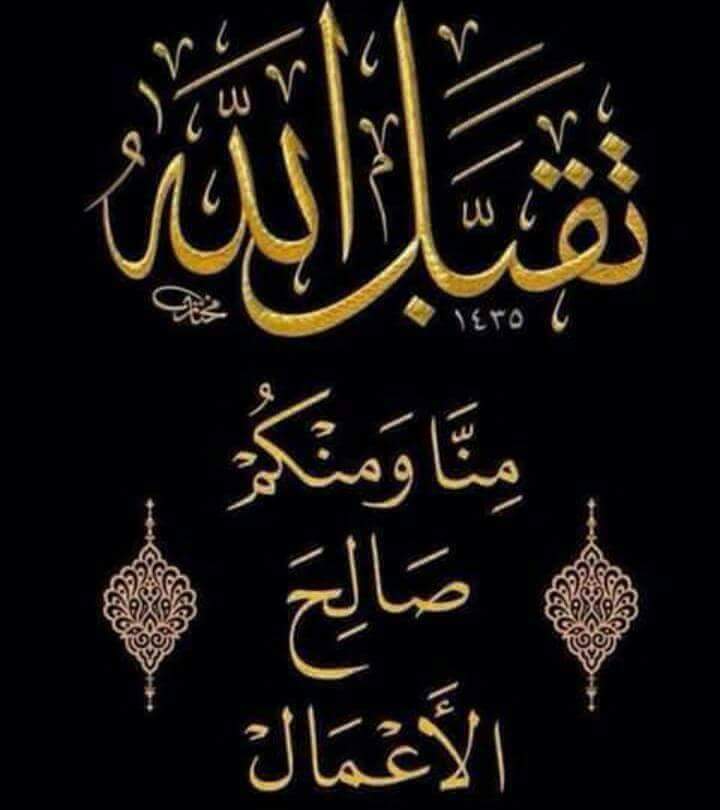 تَقَبَّلَ اللّٰهُ
١٤٣٥
مِنَّا وَمِنْكُمْ
صَالِحَ
الْأَعْمَالْ